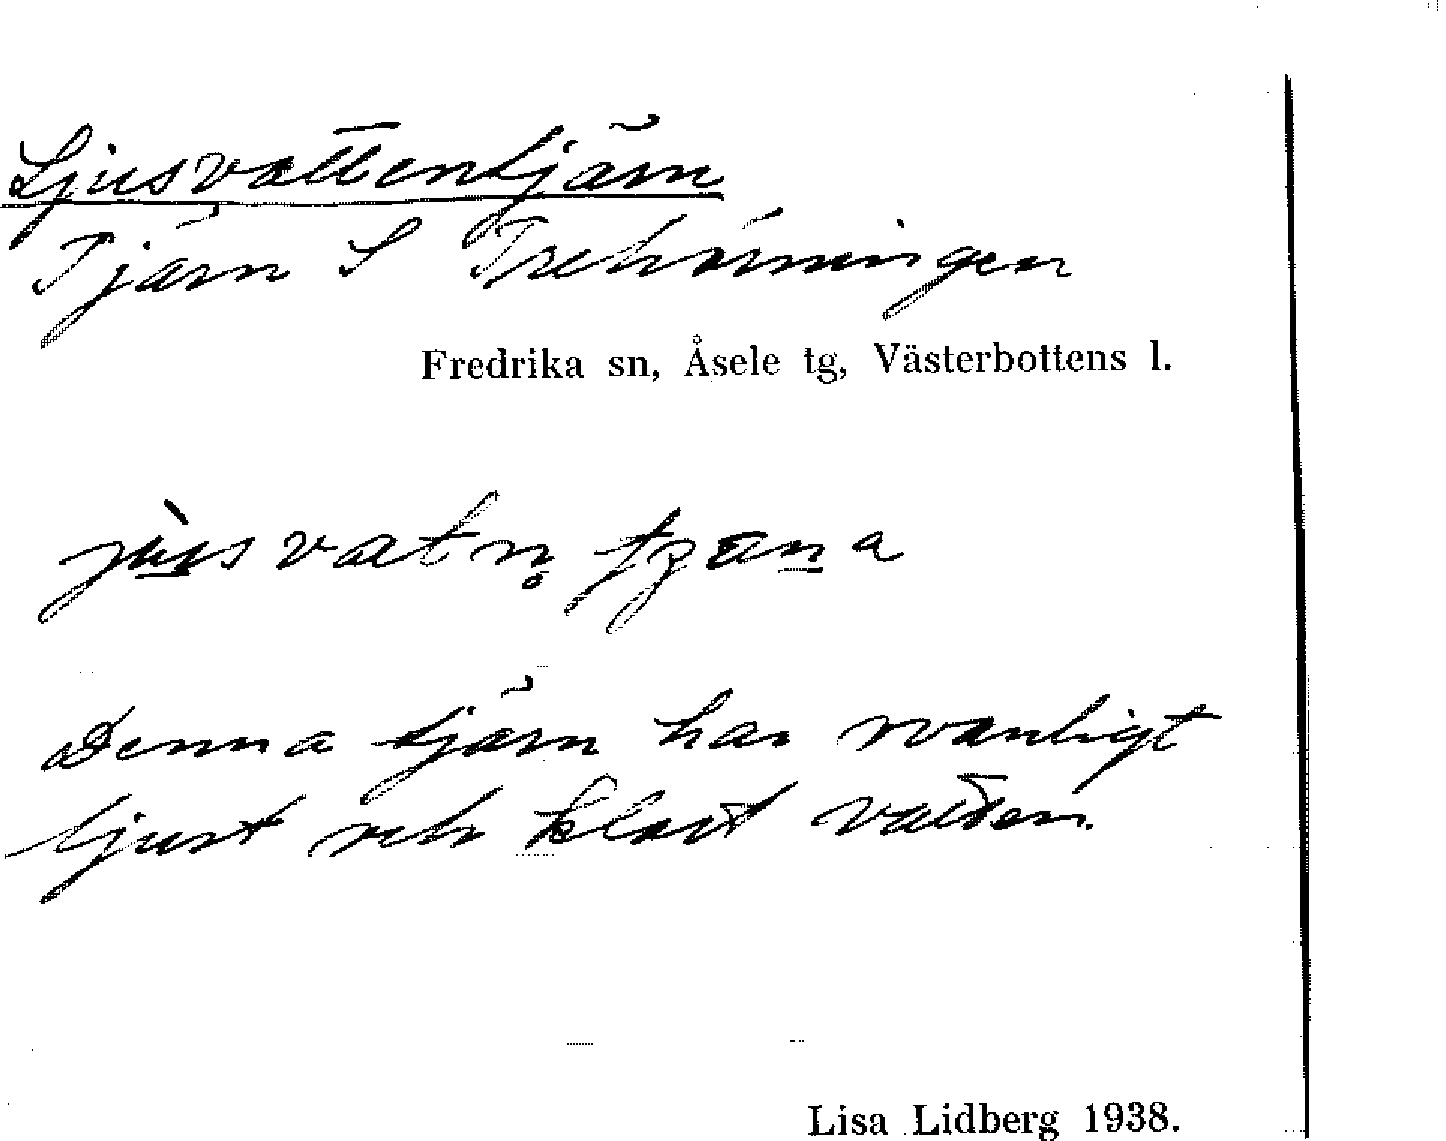 Ljusvattentjärn
Tjärn S Trehörningen
Fredrika sn, Åsele tg, Västerbottens l.
Denna tjärn har ovanligt
ljust och klart vatten.
Lisa Lidberg 1938.